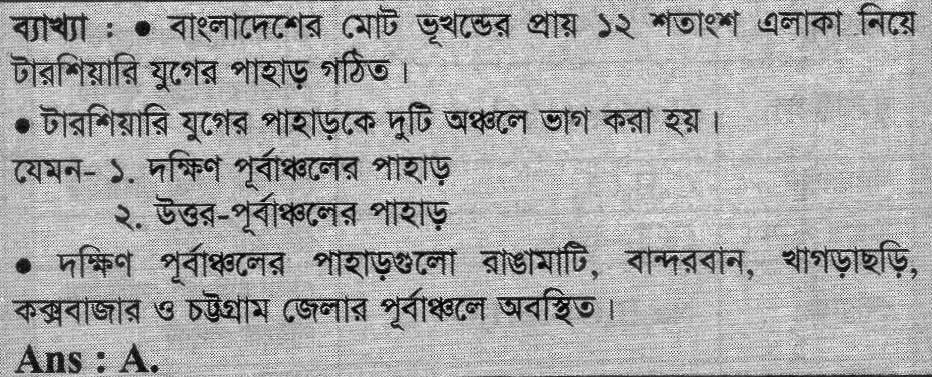 ব্যাখ্যা : ● বাংলাদেশের মোট ভূখন্ডের প্রায় ১২ শতাংশ এলাকা নিয়ে
টারশিয়ারি যুগের পাহাড় গঠিত।
● টারশিয়ারি যুগের পাহাড়কে দুটি অঞ্চলে ভাগ করা হয়।
যেমন- ১. দক্ষিণ পূর্বাঞ্চলের পাহাড়
২. উত্তর-পূর্বাঞ্চলের পাহাড়
● দক্ষিণ পূর্বাঞ্চলের পাহাড়গুলো রাঙামাটি, বান্দরবান, খাগড়াছড়ি,
কক্সবাজার ও চট্টগ্রাম জেলার পূর্বাঞ্চলে অবস্থিত।
Ans : A.